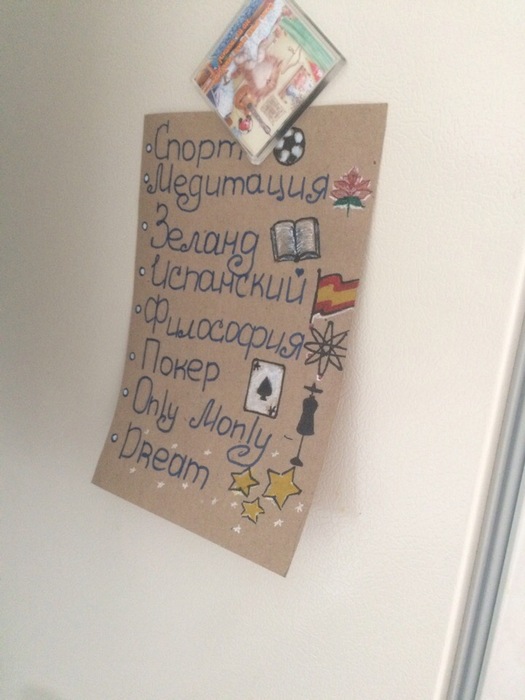 Спорт
Медитация
Зеланд
Испанский
Философия
Покер
Only Monly
Dream